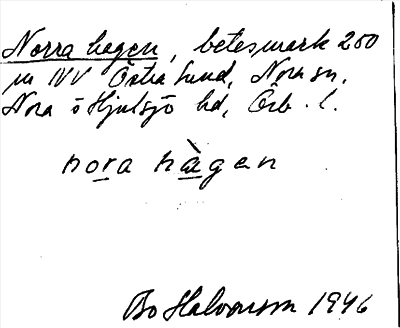 Norra hagen, betesmark 200
m NV Östra Sund, Nora sn,
Nora o Hjulsjö hd, Örb. l.
nora hàgen
Bo Halvarsson 1946